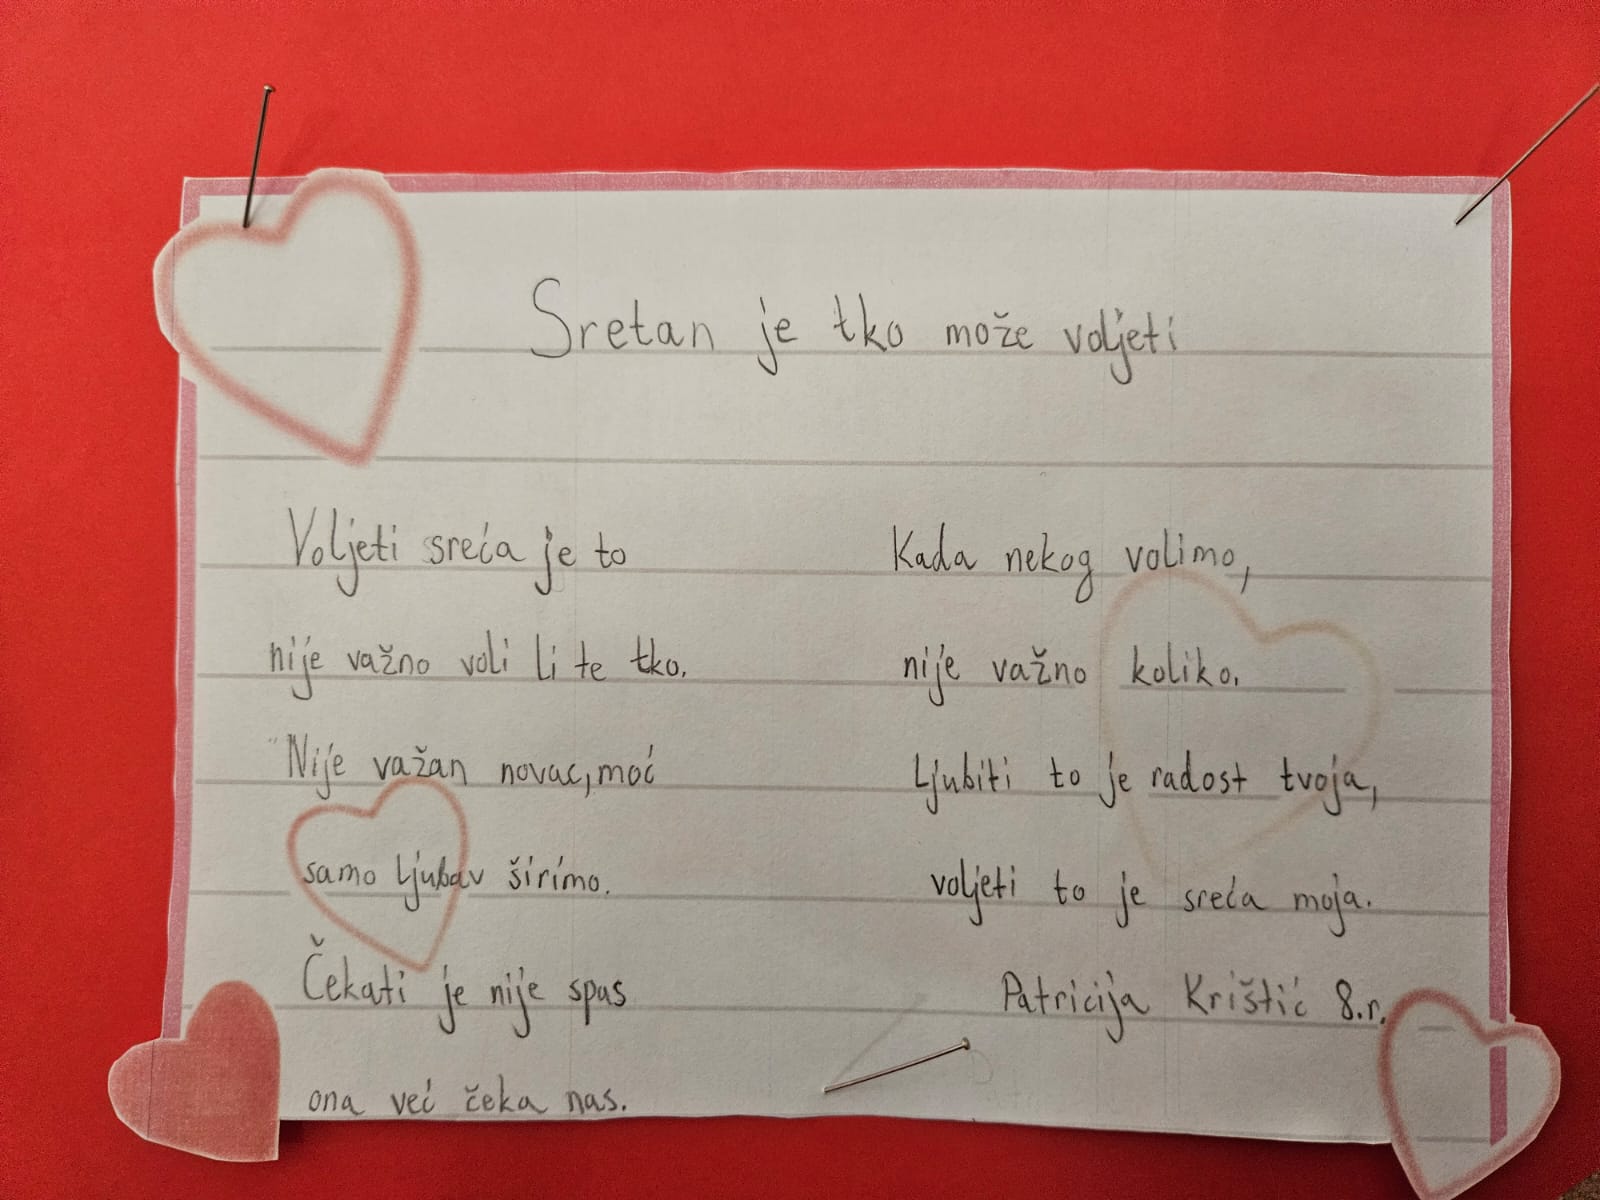 Sretan je tko može voljeti
Voljeti sreća je to
nije važno voli li te tko.
Nije važan novac, moć
samo ljubav širimo.
Čekati je nije spas
ona već čeka nas.
Kada nekog volimo,
nije važno koliko.
Ljubiti to je radost tvoja,
voljeti to je sreća moja.
Patricija Krištić 8.r.